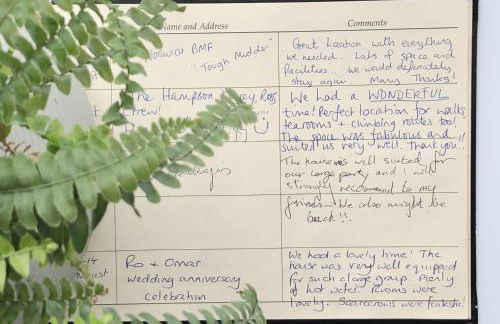 Name and Address
Comments
BMF
"Tough Mudder"
Great Location with everything
we needed. Lots of space and
facilities. We would definately
stay again. Many Thanks!
The Hampson
We had a WONDERFUL
time! Perfect location for walks,
tearooms + climbing routes too!
The space was fabulous and
suited us very well. Thank you!!
The house was well suited for
our large party and I will
strongly recommend to my
friends. We also might be
back!!!
Ro + Omar
wedding anniversary
celebration
We had a lovely time! The
house was very well equipped
for such a large group. Plenty
of hot water. Rooms were
lovely. Scarecrows were fantastic!